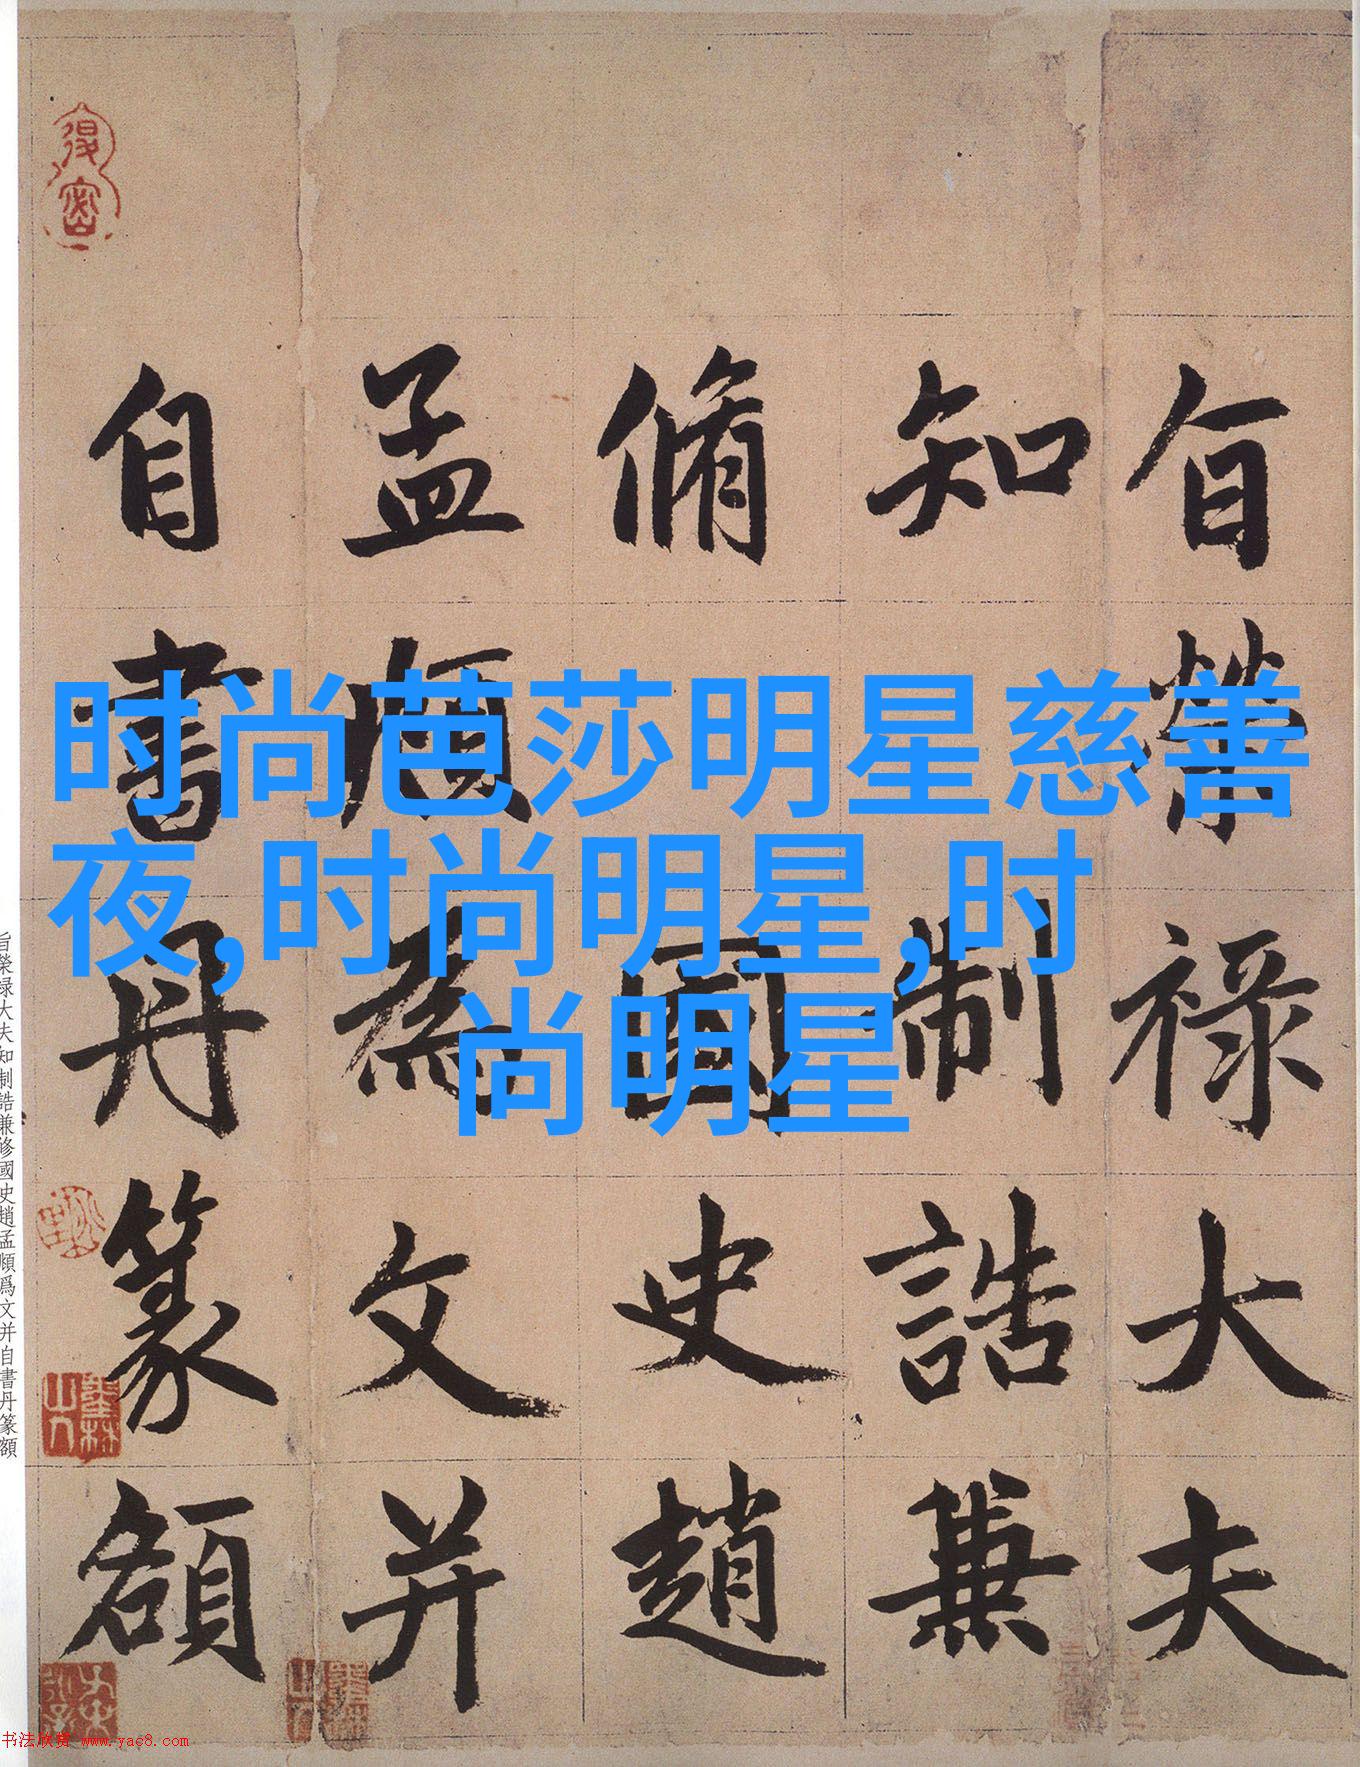 旨榮禄大夫
知制誥兼
脩國史趙
孟頫為文并
自書丹篆額
时尚芭莎明星慈善
夜,时尚明星,时
尚明星
旨榮禄大夫知制誥兼修國史趙孟頫爲文并自書丹篆額
书法欣赏 www.yac8.com